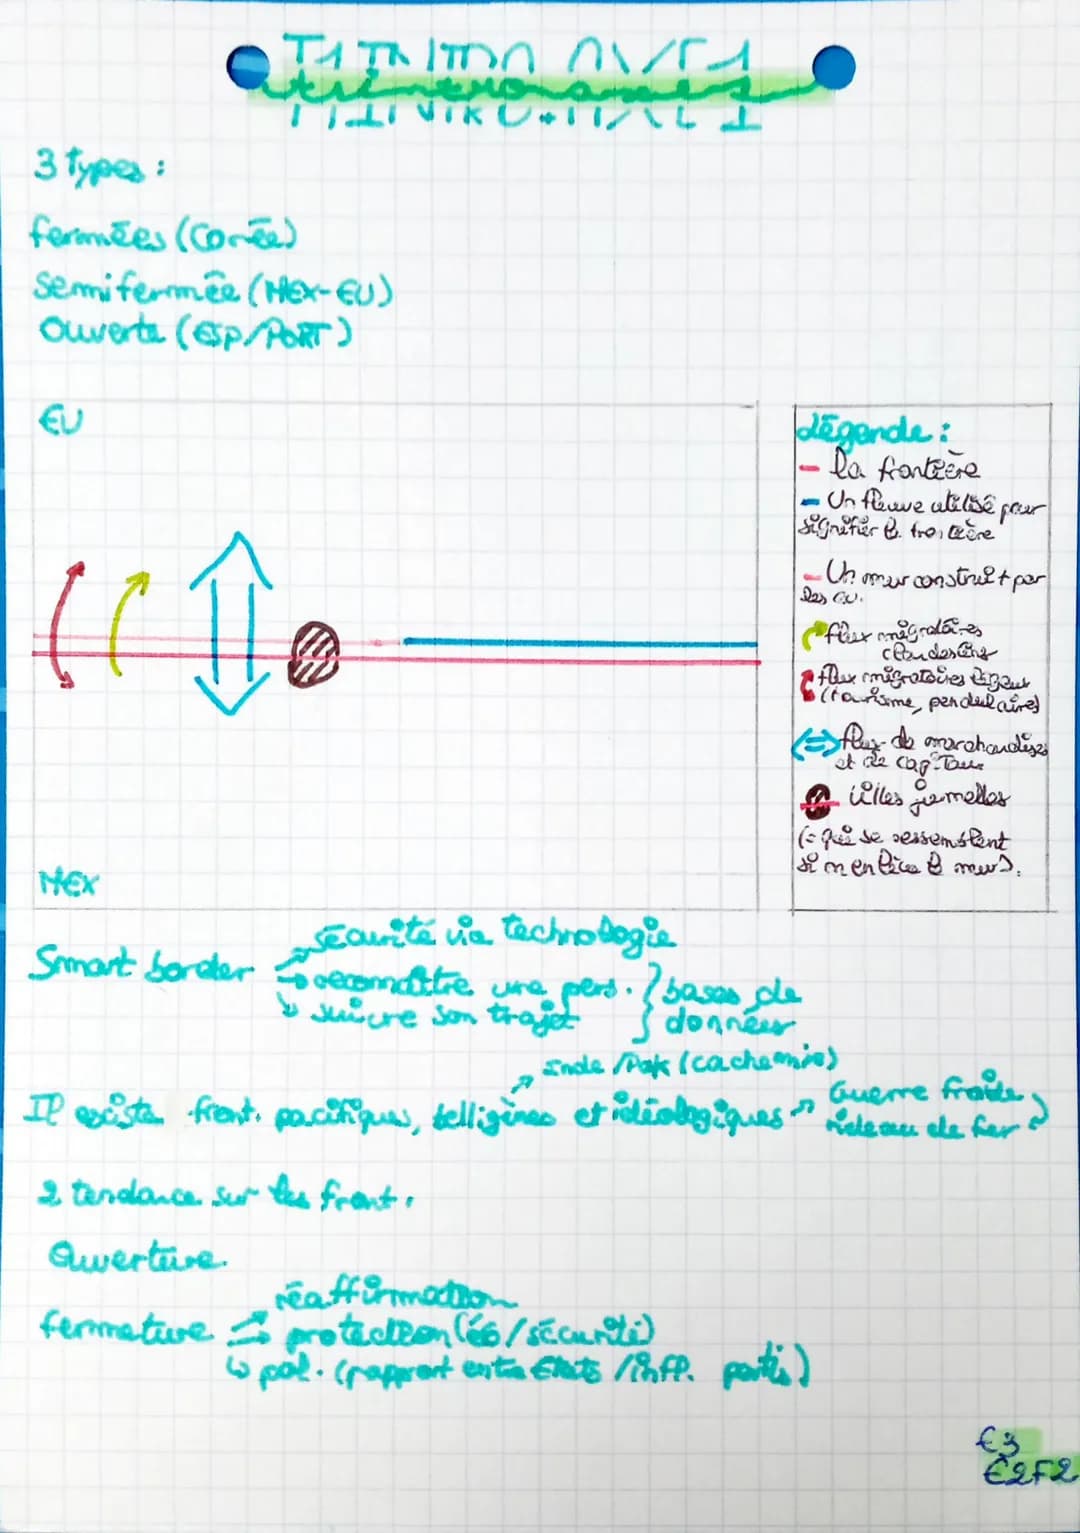 3 types :
fermées (Corée)
Semifermée (MEX-EU)
Ouverte (ESP/PORT)
EU
MEX
Légende :
la frontière
Un fleuve utilisé pour
signifier la frontière
Un mur construit par
les EU.
flux migratoires
clandestins
flux migratoires légaux
(tourisme, pendulaires)
flux de marchandises
et de capitaux
villes jumelles
(= qui se ressemblent
si on enlève le mur).
Smart border
→ sécurité via technologie
→ reconnaître une pers.
→ suivre son trajet
} bases de
données
Inde /Pak (cachemire)
Il existe front. pacifiques, belligènes et idéologiques
Guerre froide
rideau de fer
2 tendance sur les front.
Ouverture
fermeture
→ réaffirmation
→ protection (éco/sécurité)
↳ pol. (rapport entre États /inff. partis)
€3
€2F2